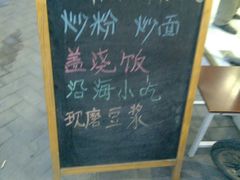 炒粉 炒面
盖浇饭
沿海小吃
现磨豆浆